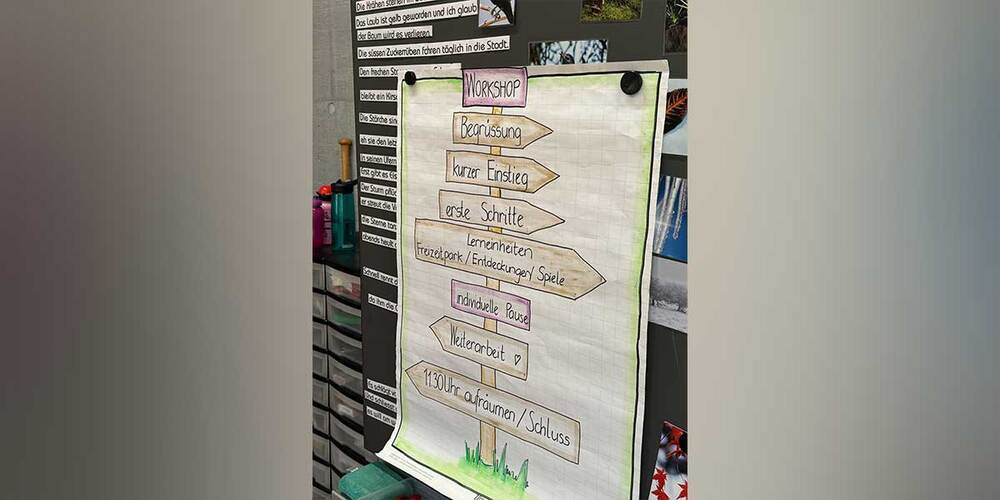 Die Krähen stehen in
Das Laub ist gelb geworden und ich glaub
der Baum wird es verlieren.
Die süssen Zuckerrüben fahren täglich in die Stadt.
Den frechen
bleibt ein
Die Störche
eh sie den
in seinen
erst gibt es
Der Sturm
er streut die
die Sterne
abends heult
Schnell rennt
da ihm die
es will am
WORKSHOP
Begrüssung
kurzer Einstieg
erste Schritte
Lerneinheiten
Freizeitpark / Entdeckungen / Spiele
individuelle Pause
Weiterarbeit ♡
11.30 Uhr aufräumen / Schluss